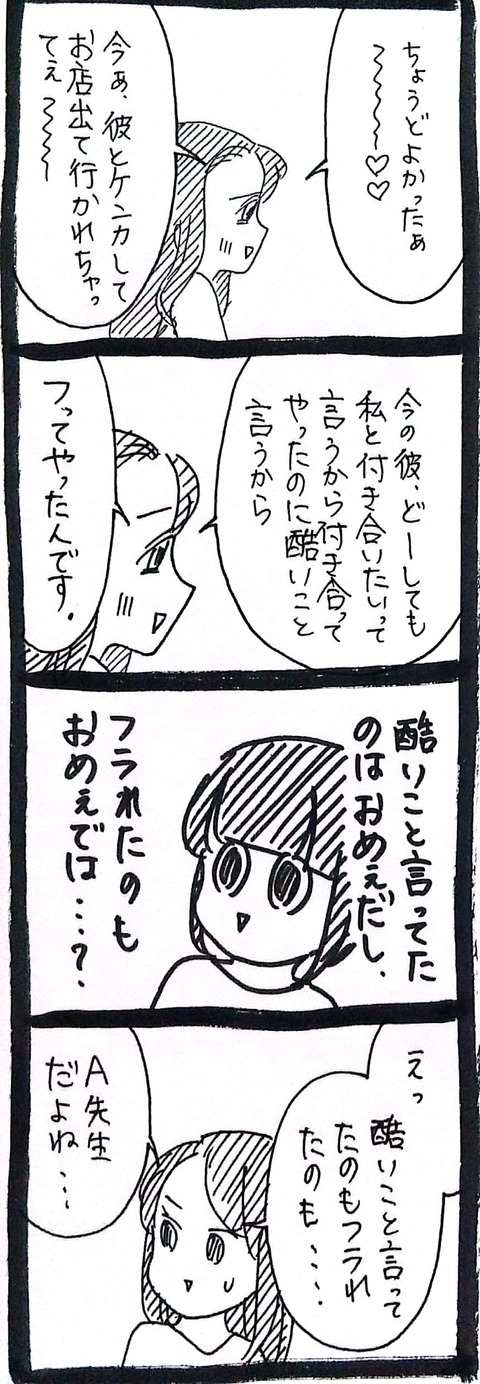 ちょうどよかったぁ
〜〜〜〜♡♡
今ぁ、彼とケンカして
お店出て行かれちゃっ
てぇ〜〜〜
今の彼、どーしても
私と付き合いたいって
言うから付き合って
やったのに酷いこと
言うから
フってやったんです。
酷いこと言ってた
のはおめぇだし、
フラれたのも
おめぇでは…?
えっ
酷いこと言って
たのもフラれ
たのも….
A先生
だよね…